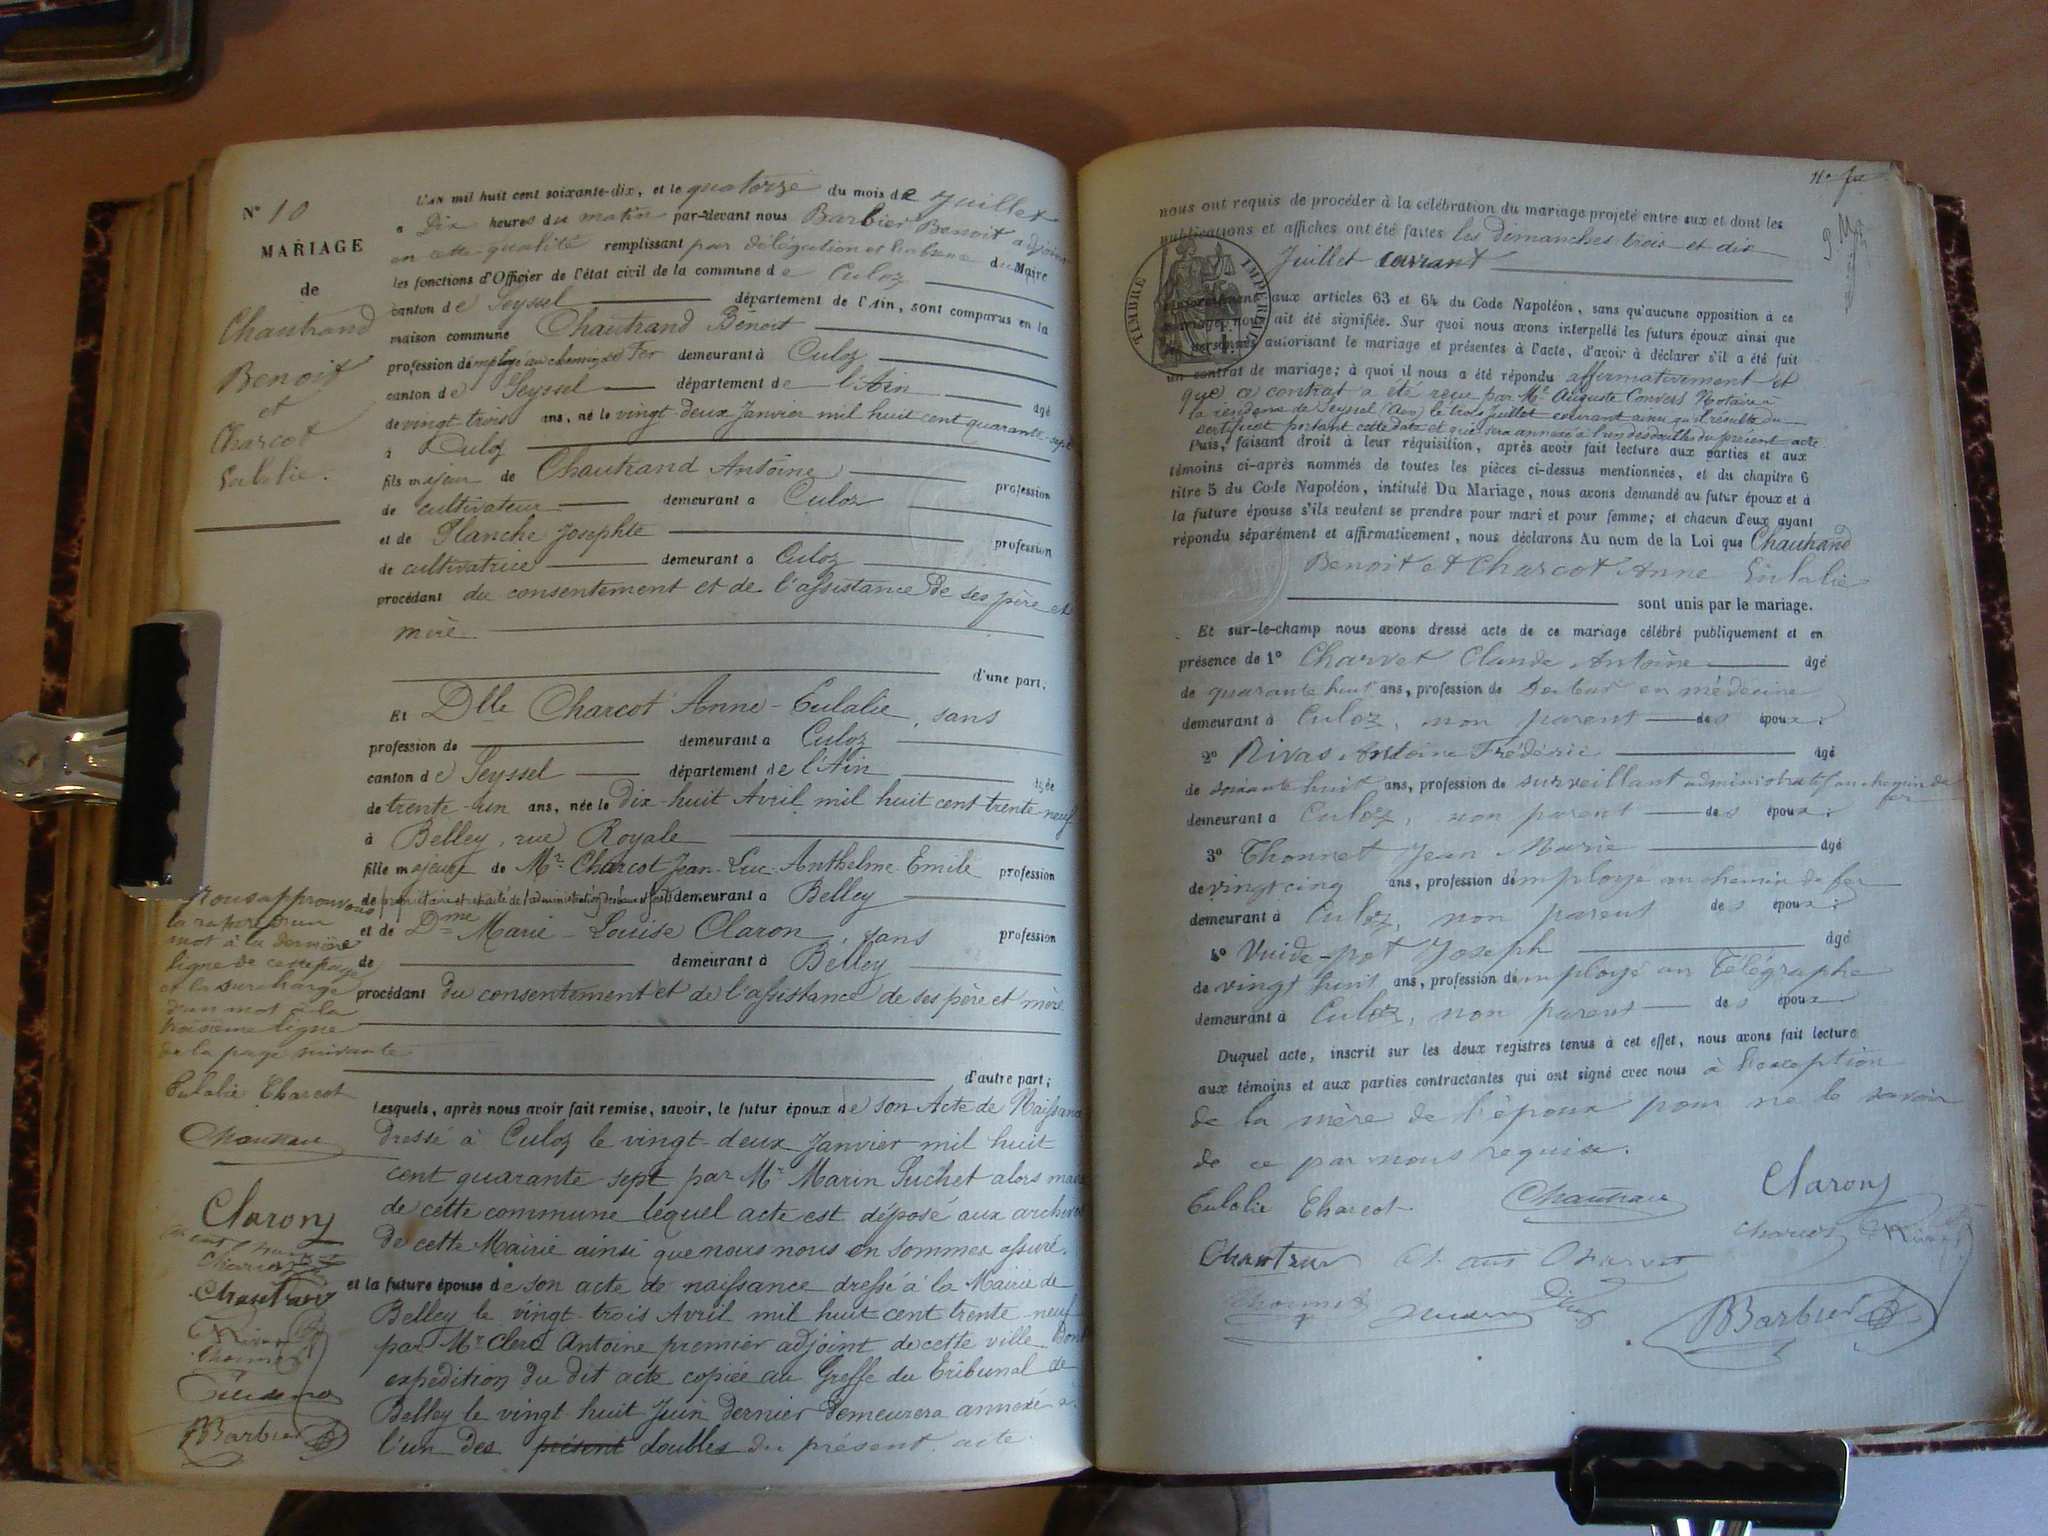 N° 10
MARIAGE
de
Chautrand
Benoit
et
Charcot
Eulalie.
L'AN mil huit cent soixante-dix, et le quatorze du mois de Juillet
a Dix heures du matin par-devant nous Barbier Benoit adjoint
en cette qualité remplissant par délégation du Maire
les fonctions d'Officier de l'état civil de la commune de Culoz
canton de Seyssel département de l'Ain, sont comparus en la
maison commune Chautrand Benoit
profession d'employé au chemin de Fer demeurant à Culoz
canton de Seyssel département de l'Ain âgé
de vingt trois ans, né le vingt-deux Janvier mil huit cent quarante-sept
à Culoz
fils majeur de Chautrand Antoine profession
de cultivateur demeurant a Culoz
et de Planche Josephte profession
de cultivatrice demeurant a Culoz
procédant du consentement et de l'assistance de ses père et
mère
d'une part;
Et Dlle Charcot Anne-Eulalie, sans
profession de demeurant a Culoz
canton de Seyssel département de l'Ain âgée
de trente-un ans, née le dix-huit Avril mil huit cent trente-neuf
à Belley, rue Royale
fille majeure de Mr Charcot Jean-Luc-Anthelme-Emile profession
de propriétaire et retraité de l'administration demeurant a Belley
et de Dme Marie-Louise Claron, sans profession
de demeurant à Belley
procédant du consentement et de l'assistance de ses père et mère
d'autre part;
Lesquels, après nous avoir fait remise, savoir, le futur époux de son Acte de Naissance
dressé à Culoz le vingt-deux Janvier mil huit
cent quarante sept par Mr Marin Suchet alors maire
de cette commune lequel acte est déposé aux archives
de cette Mairie ainsi que nous nous en sommes assuré.
et la future épouse de son acte de naissance dressé à la Mairie de
Belley le vingt-trois Avril mil huit cent trente-neuf
par Mr Clerc Antoine premier adjoint de cette ville. Dont
expédition du dit acte copiée au Greffe du Tribunal de
Belley le vingt-huit Juin dernier demeurera annexé à
l'un des présent doubles du présent acte.
Nous approuvons
la rature d'un
mot à la dernière
ligne de cette page
et la surcharge
d'un mot à la
troisième ligne
de la page suivante
Eulalie Charcot
Chautrau
Clarony
Charcot
Chautrau
Rivas
Thonnet
Barbier
nous ont requis de procéder à la célébration du mariage projeté entre eux et dont les
publications et affiches ont été faites les dimanches trois et dix
Juillet courant
TIMBRE IMPERIAL
conformément aux articles 63 et 64 du Code Napoléon, sans qu'aucune opposition à ce
mariage nous ait été signifiée. Sur quoi nous avons interpellé les futurs époux ainsi que
les personnes autorisant le mariage et présentes à l'acte, d'avoir à déclarer s'il a été fait
un contrat de mariage; à quoi il nous a été répondu affirmativement et
que ce contrat a été reçu par Me Auguste Convers Notaire à
la résidence de Seyssel (Ain) le trois Juillet courant ainsi qu'il résulte du
certificat portant cette date et qui sera annexé à l'un des doubles du présent acte
Puis, faisant droit à leur réquisition, après avoir fait lecture aux parties et aux
témoins ci-après nommés de toutes les pièces ci-dessus mentionnées, et du chapitre 6
titre 5 du Code Napoléon, intitulé Du Mariage, nous avons demandé au futur époux et à
la future épouse s'ils veulent se prendre pour mari et pour femme; et chacun d'eux ayant
répondu séparément et affirmativement, nous déclarons Au nom de la Loi que Chautrand
Benoit et Charcot Anne Eulalie
sont unis par le mariage.
Et sur-le-champ nous avons dressé acte de ce mariage célébré publiquement et en
présence de 1° Charvet Claude Antoine âgé
de quarante huit ans, profession de Docteur en médecine
demeurant à Culoz, non parent des époux.
2° Rivas Antoine Frédéric âgé
de soixante huit ans, profession de surveillant administratif au chemin de
fer
demeurant a Culoz, non parent des époux.
3° Thonnet Jean Marie âgé
de vingt cinq ans, profession d'employé au chemin de fer
demeurant à Culoz, non parent des époux.
4° Vuide-pot Joseph âgé
de vingt huit ans, profession d'employé au Télégraphe
demeurant à Culoz, non parent des époux
Duquel acte, inscrit sur les deux registres tenus à cet effet, nous avons fait lecture
aux témoins et aux parties contractantes qui ont signé avec nous à l'exception
de la mère de l'époux pour ne le savoir
de ce par nous requise.
Eulalie Charcot Chautrau Clarony
Chautrau Charvet Charcot Rivas
Thonnet Barbier